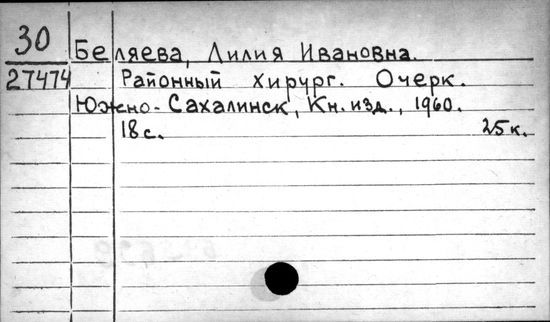 30 Беляева, Лилия Ивановна.
27474 Районный хирург. Очерк.
Южно-Сахалинск, Кн. изд., 1960.
18 с. 25 к.